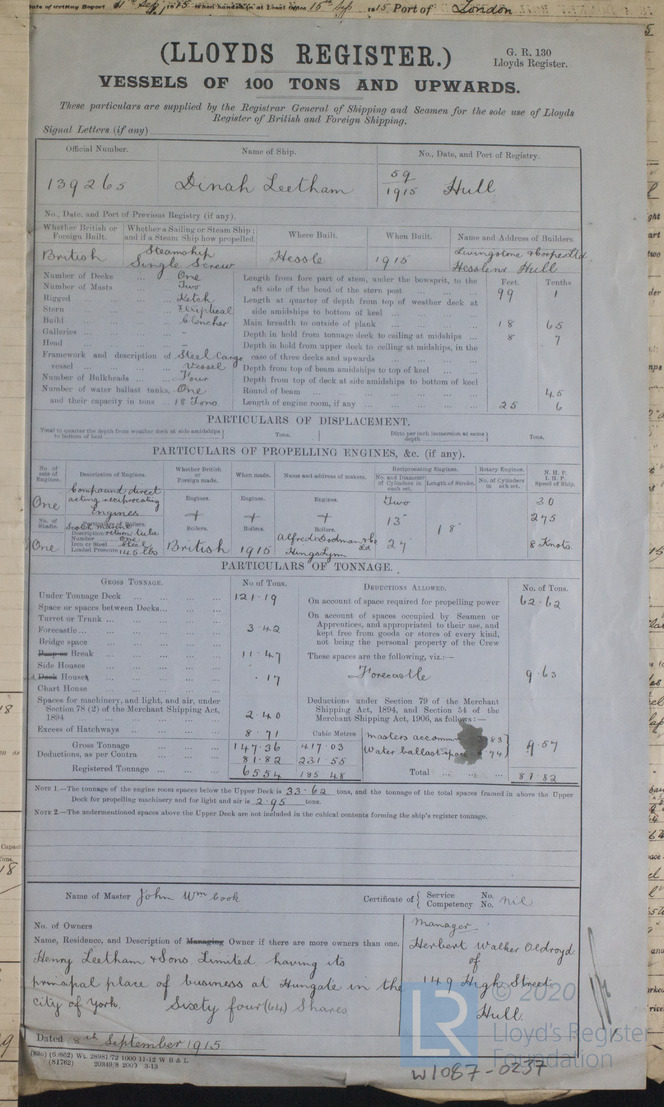 Date of writing Report 11th Sep 1915 When handed in at Local Office 15th Sep 1915 Port of London
(LLOYDS REGISTER.)
G. R. 130
Lloyds Register.
VESSELS OF 100 TONS AND UPWARDS.
These particulars are supplied by the Registrar General of Shipping and Seamen for the sole use of Lloyds
Register of British and Foreign Shipping.
Signal Letters (if any)
Official Number. Name of Ship. No., Date, and Port of Registry.
139265 Dinah Leetham 59/1915 Hull
No., Date, and Port of Previous Registry (if any).
Whether British or Foreign Built. Whether a Sailing or Steam Ship; and if a Steam Ship how propelled. Where Built. When Built. Name and Address of Builders.
British Steamship Single Screw Hessle 1915 Livingstone & Cooper Ltd Hessle Hull
Number of Decks One
Number of Masts Two
Rigged Ketch
Stern Elliptical
Build Clencher
Galleries -
Head -
Framework and description of vessel Steel Cargo Vessel
Number of Bulkheads Four
Number of water ballast tanks, One
and their capacity in tons 18 Tons.
Feet. Tenths
Length from fore part of stem, under the bowsprit, to the
aft side of the head of the stern post 99 1
Length at quarter of depth from top of weather deck at
side amidships to bottom of keel
Main breadth to outside of plank 18 65
Depth in hold from tonnage deck to ceiling at midships 8 7
Depth in hold from upper deck to ceiling at midships, in the
case of three decks and upwards
Depth from top of beam amidships to top of keel
Depth from top of deck at side amidships to bottom of keel
Round of beam 45
Length of engine room, if any 25 6
PARTICULARS OF DISPLACEMENT.
Total to quarter the depth from weather deck at side amidships to bottom of keel Tons. Ditto per inch immersion at same depth Tons.
PARTICULARS OF PROPELLING ENGINES, &c. (if any).
No. of sets of Engines. Description of Engines. Whether British or Foreign made. When made. Name and address of makers. Reciprocating Engines. No. and Diameter of Cylinders in each set. Length of Stroke. Rotary Engines. No. of Cylinders in each set. N. H. P. I. H. P. Speed of Ship.
One Compound direct acting reciprocating Engines Engines. Engines. Engines. Two 30
13" 18" 275
No. of Shafts. Particulars of Boilers. Boilers. Boilers. Boilers.
Description
Number One
Iron or Steel Steel
Loaded Pressure 145 lbs
One British 1915 Alfred Dodman & Co Ld Kings Lynn 27 8 Knots
PARTICULARS OF TONNAGE.
GROSS TONNAGE. No of Tons. DEDUCTIONS ALLOWED. No. of Tons.
Under Tonnage Deck 121.19
Space or spaces between Decks
Turret or Trunk
Forecastle 3.42
Bridge space
Poop or Break 11.47
Side Houses
Deck Houses .17
Chart House
Spaces for machinery, and light, and air, under
Section 78 (2) of the Merchant Shipping Act,
1894 2.40
Excess of Hatchways 8.71 Cubic Metres
Gross Tonnage 147.36 417.03
Deductions, as per Contra 81.82 231.55
Registered Tonnage 65.54 185.48
On account of space required for propelling power 62.62
On account of spaces occupied by Seamen or
Apprentices, and appropriated to their use, and
kept free from goods or stores of every kind,
not being the personal property of the Crew
These spaces are the following, viz:—
Forecastle 9.63
Deductions under Section 79 of the Merchant
Shipping Act, 1894, and Section 54 of the
Merchant Shipping Act, 1906, as follows:—
Masters accomm 83
Water ballast space 74 9.57
Total 81.82
NOTE 1.—The tonnage of the engine room spaces below the Upper Deck is 33.62 tons, and the tonnage of the total spaces framed in above the Upper
Deck for propelling machinery and for light and air is 2.95 tons.
NOTE 2.—The undermentioned spaces above the Upper Deck are not included in the cubical contents forming the ship's register tonnage.
Name of Master John Wm Cook Certificate of Service No. Competency No. nil
No. of Owners
Name, Residence, and Description of Managing Owner if there are more owners than one.
Henry Leetham & Sons. Limited having its
principal place of business at Hungate in the
City of York. Sixty four (64) Shares
Manager
Herbert Walker Oldroyd
of
149 High Street
Hull.
Dated 8th September 1915
(81762) 20349/8 2000 3-13
© 2020
LR
Lloyd's Register
Foundation
W1087-0237